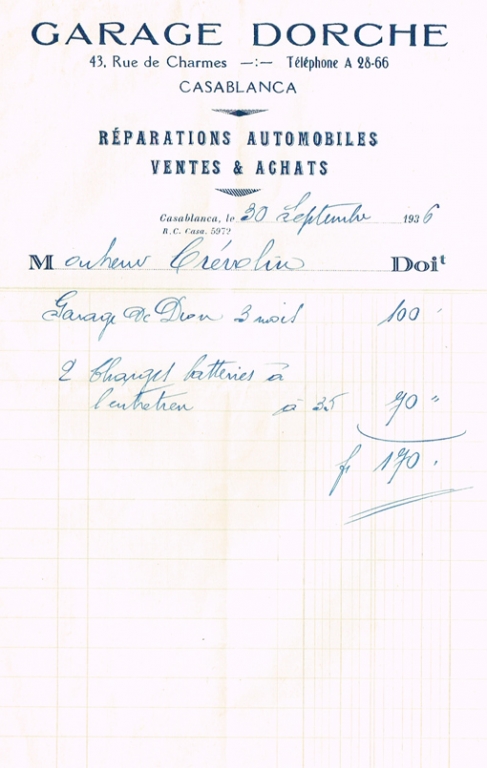 GARAGE DORCHE
43, Rue de Charmes —:— Téléphone A 28-66
CASABLANCA
RÉPARATIONS AUTOMOBILES
VENTES & ACHATS
Casablanca, le 30 Septembre 1936
R. C. Casa. 5972
Monsieur Trévolin Doit
Garage De Dion 3 mois 100
2 Charges batteries à
l'entretien à 35 70 "
fr 170